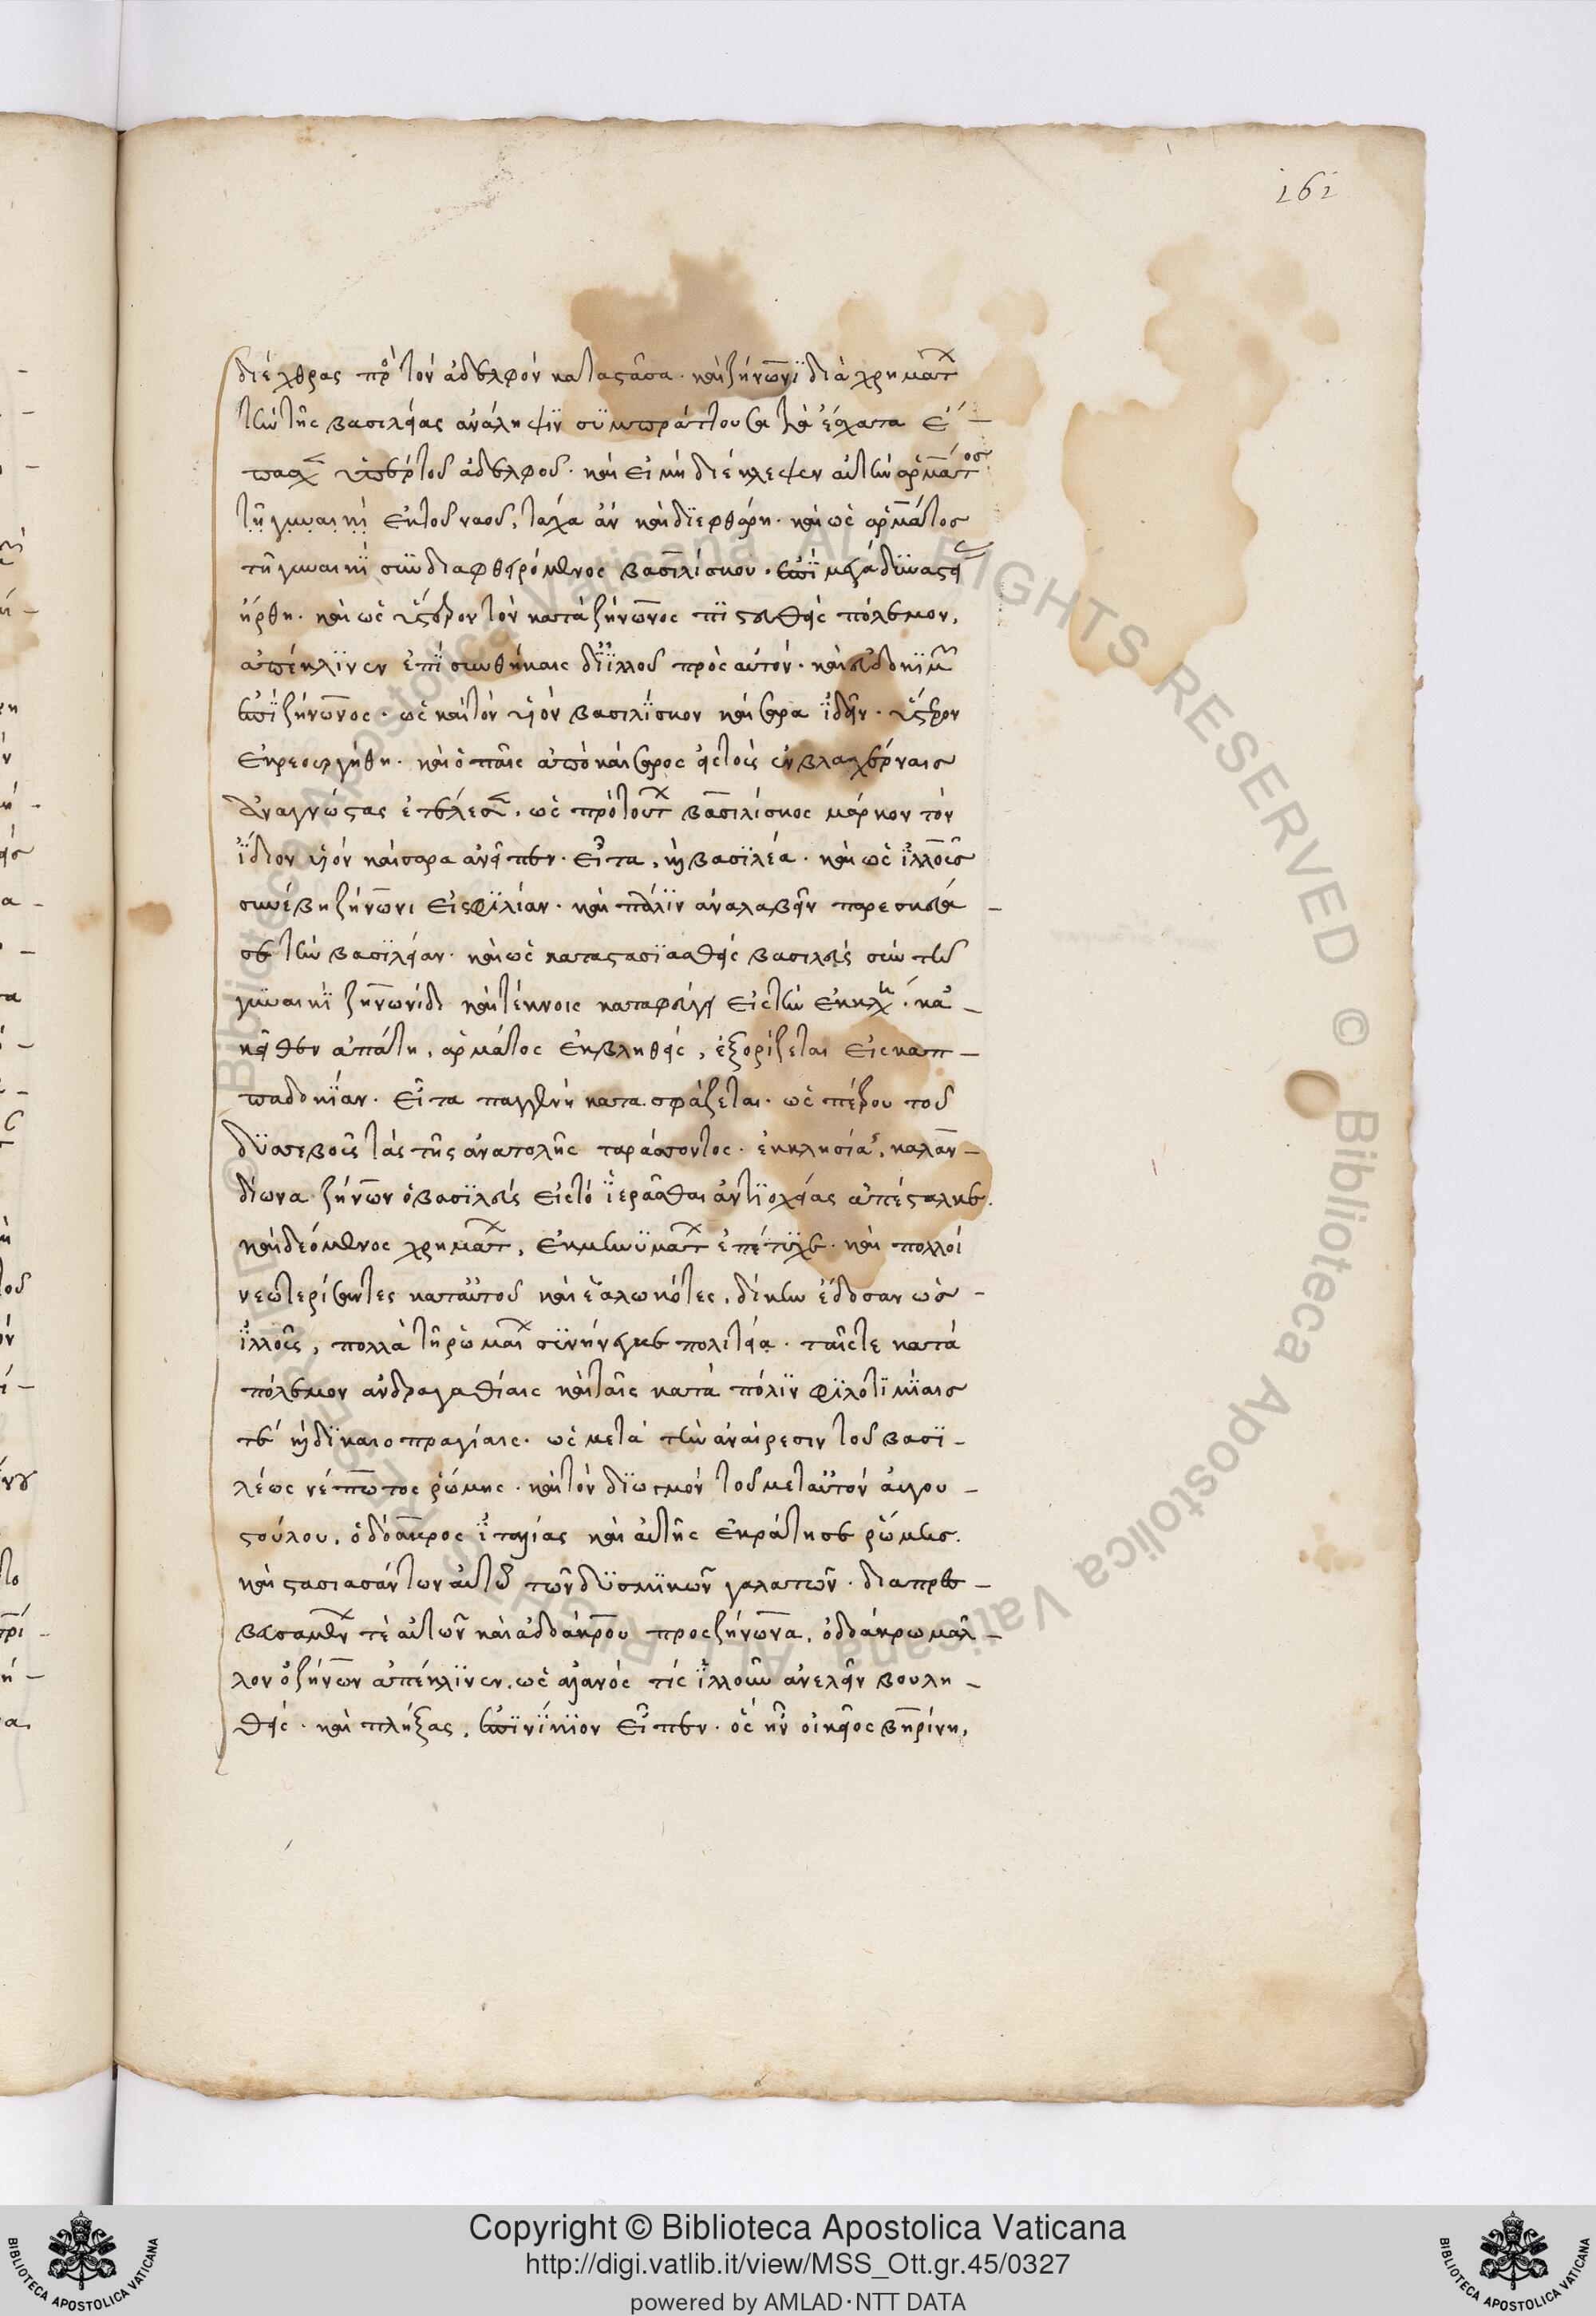 161
διέχθρας πρὸς τὸν ἀδελφὸν καταστᾶσα. καὶ ζήνωνϊ διὰ χρημάτ
τὴν τῆς βασιλείας ἀνάληψϊν συμπράττουσα τὰ ἔσχατα ἐ –
πασχ ὑπὸ τοῦ ἀδελφοῦ. καὶ εἰ μὴ διέκλεψεν αὐτὴν ἁρμάτος
τῇ γυναικὶ ἐκ τοῦ ναοῦ, τάχα ἂν καὶ διεφθάρη. καὶ ὡς ἁρμάτος
τῇ γυναικὶ συνδιαφθειρόμενος βασιλίσκου. ἐπὶ μέγα δυναστεί
ἤρθη. καὶ ὡς ὕστερον τὸν κατὰ ζήνωνος πιστευθεὶς πόλεμον,
ἀπέκλινεν ἐπὶ συνθήκαις δι ἰλλοῦ πρὸς αὐτόν. καὶ εὐδοκιμ
ἐπὶ ζήνωνος. ὡς καὶ τὸν υἱὸν βασιλίσκον καίσαρα ἰδεῖν. ὕστερον
ἐκρεουργήθη. καὶ ὁ παῖς ἀπὸ καίσαρος εἰς τοὺς ἐν βλαχέρναις
ἀναγνώστας ἐτέλεσ. ὡς πρὸ τούτ βασιλίσκος μάρκον τὸν
ἴδιον υἱὸν καίσαρα ἀνεῖπεν. εἶτα, καὶ βασιλέα. καὶ ὡς ἰλλοῦς
συνέβη ζήνωνι εἰς φιλίαν. καὶ πάλιν ἀναλαβεῖν παρεσκεύα –
σε τὴν βασιλείαν. καὶ ὡς καταστασιασθεὶς βασιλεὺς σὺν τῇ
γυναικὶ ζηνωνίδι καὶ τέκνοις καταφεύγει εἰς τὴν ἐκκλη. κἀ –
κεῖθεν ἀπάτη, ἁρμάτος ἐκβληθεὶς, ἐξορίζεται εἰς καπ –
παδοκίαν. εἶτα παγγενῆ κατασφάζεται. ὡς πέτρου τοῦ
δυσσεβοῦς τὰς τῆς ἀνατολῆς ταράσσοντος. ἐκκλησίας, καλαν –
δίωνα ζήνων ὁ βασιλεὺς εἰς τὸ ἱερᾶσθαι ἀντιοχείας ἀπέσταλκε.
καὶ δεόμενος χρημάτ, ἐκ μηνυμάτ ἐπέτυχε. καὶ πολλοὶ
νεωτερίσαντες κατ αὐτοῦ καὶ ἑαλωκότες, δίκην ἔδοσαν ὡς –
ἰλλοῦς, πολλὰ τῇ ῥωμαϊ συνήνεγκε πολιτεία. ταῖς τε κατὰ
πόλεμον ἀνδραγαθίαις καὶ ταῖς κατὰ πόλιν φιλοτιμίαις
τέ καὶ δικαιοπραγίαις. ὡς μετὰ τὴν ἀναίρεσιν τοῦ βασι –
λέως νέπωτος ῥώμης. καὶ τὸν διωγμὸν τοῦ μετ αὐτὸν αὐγου –
στούλου, ὀδόακρος ἰταλίας καὶ αὐτῆς ἐκράτησε ῥώμης.
καὶ στασιασάντων αὐτῷ τῶν δυσμικῶν γαλατῶν. διαπρε –
βευσαμέν τὲ αὐτῶν καὶ ἀδοάκρου πρὸς ζήνωνα, ὀδοάκρω μᾶλ –
λον ὁ ζήνων ἀπέκλινεν. ὡς ἀλανός τίς ἰλλοῦν ἀνελεῖν βουλη –
θείς. καὶ πλήξας, ἐπινίκιον εἶπεν. ὃς ἦν οἰκεῖος βηρίνη,
Copyright © Biblioteca Apostolica Vaticana
http://digi.vatlib.it/view/MSS_Ott.gr.45/0327
powered by AMLAD·NTT DATA